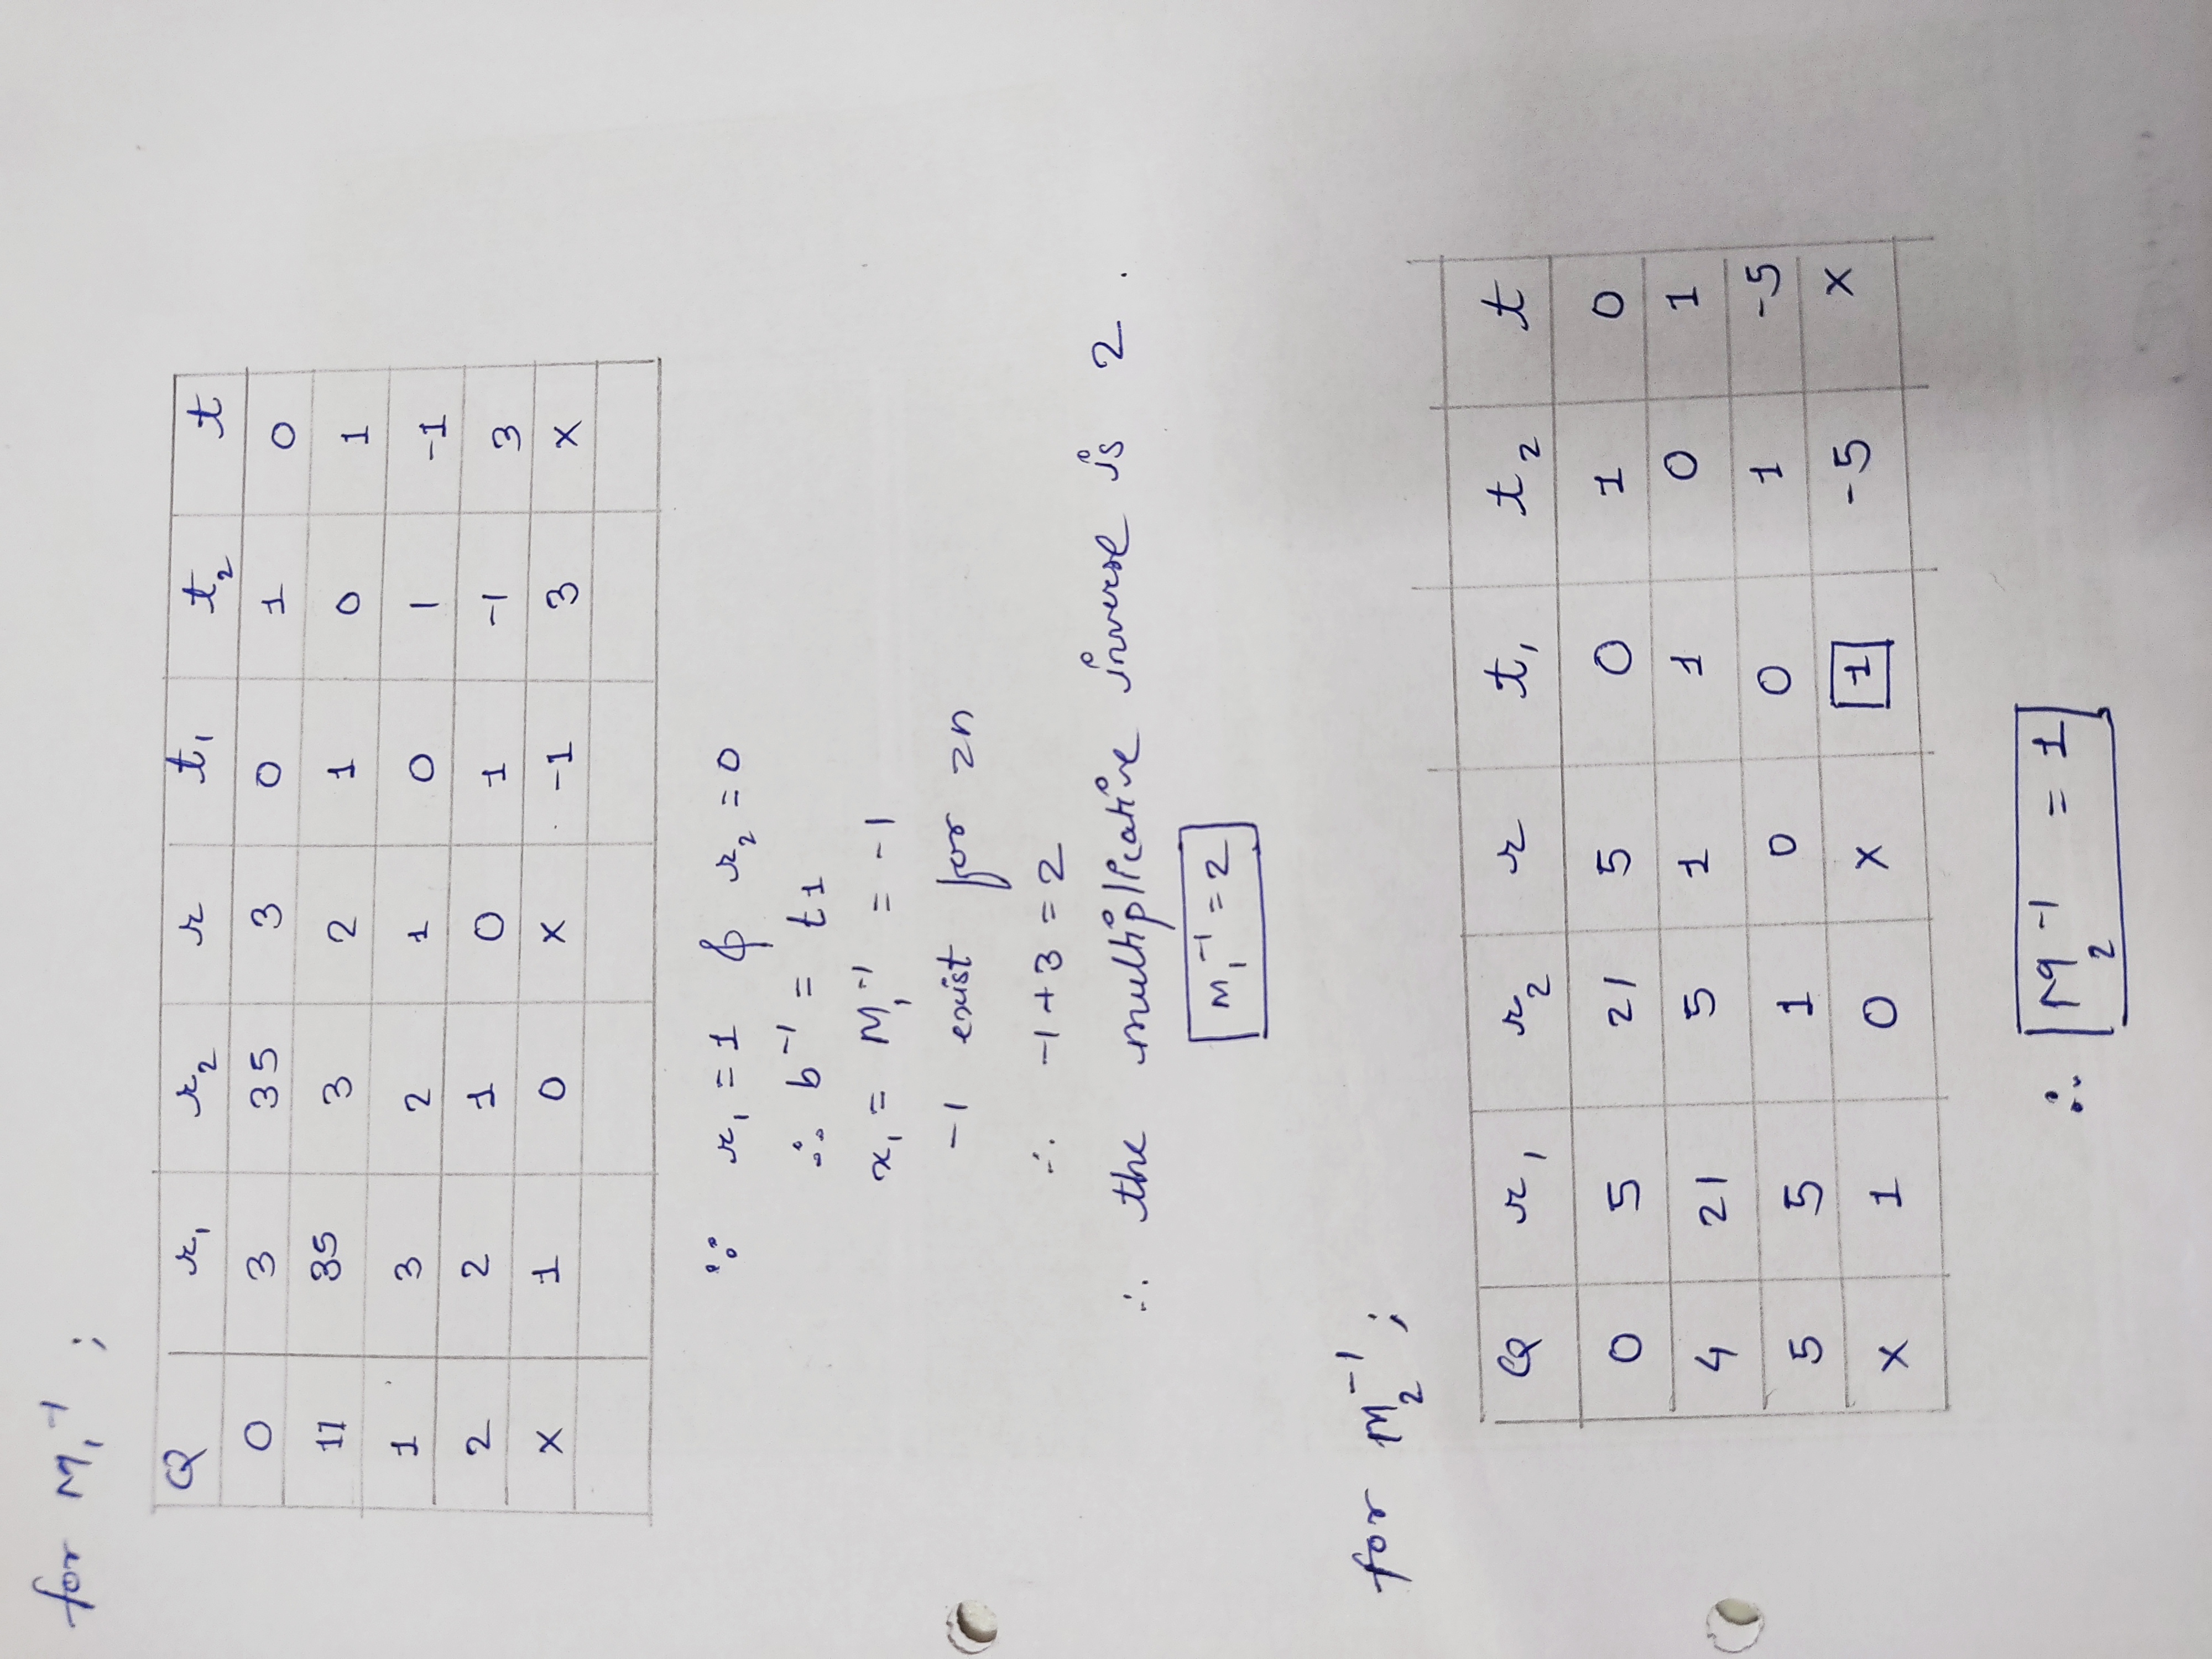 for M₁⁻¹ ;
Q r₁ r₂ r t₁ t₂ t
0 3 35 3 0 1 0
11 35 3 2 1 0 1
1 3 2 1 0 1 -1
2 2 1 0 1 -1 3
x 1 0 x -1 3 x
∵ r₁ = 1 & r₂ = 0
∴ b⁻¹ = t1
x₁ = M₁⁻¹ = -1
-1 exist for zn
∴ -1+3 = 2
∴ the multiplicative inverse is 2 .
M₁⁻¹ = 2
for M₂⁻¹ ;
Q r₁ r₂ r t₁ t₂ t
0 5 21 5 0 1 0
4 21 5 1 1 0 1
5 5 1 0 0 1 -5
x 1 0 x 1 -5 x
∴ M₂⁻¹ = 1